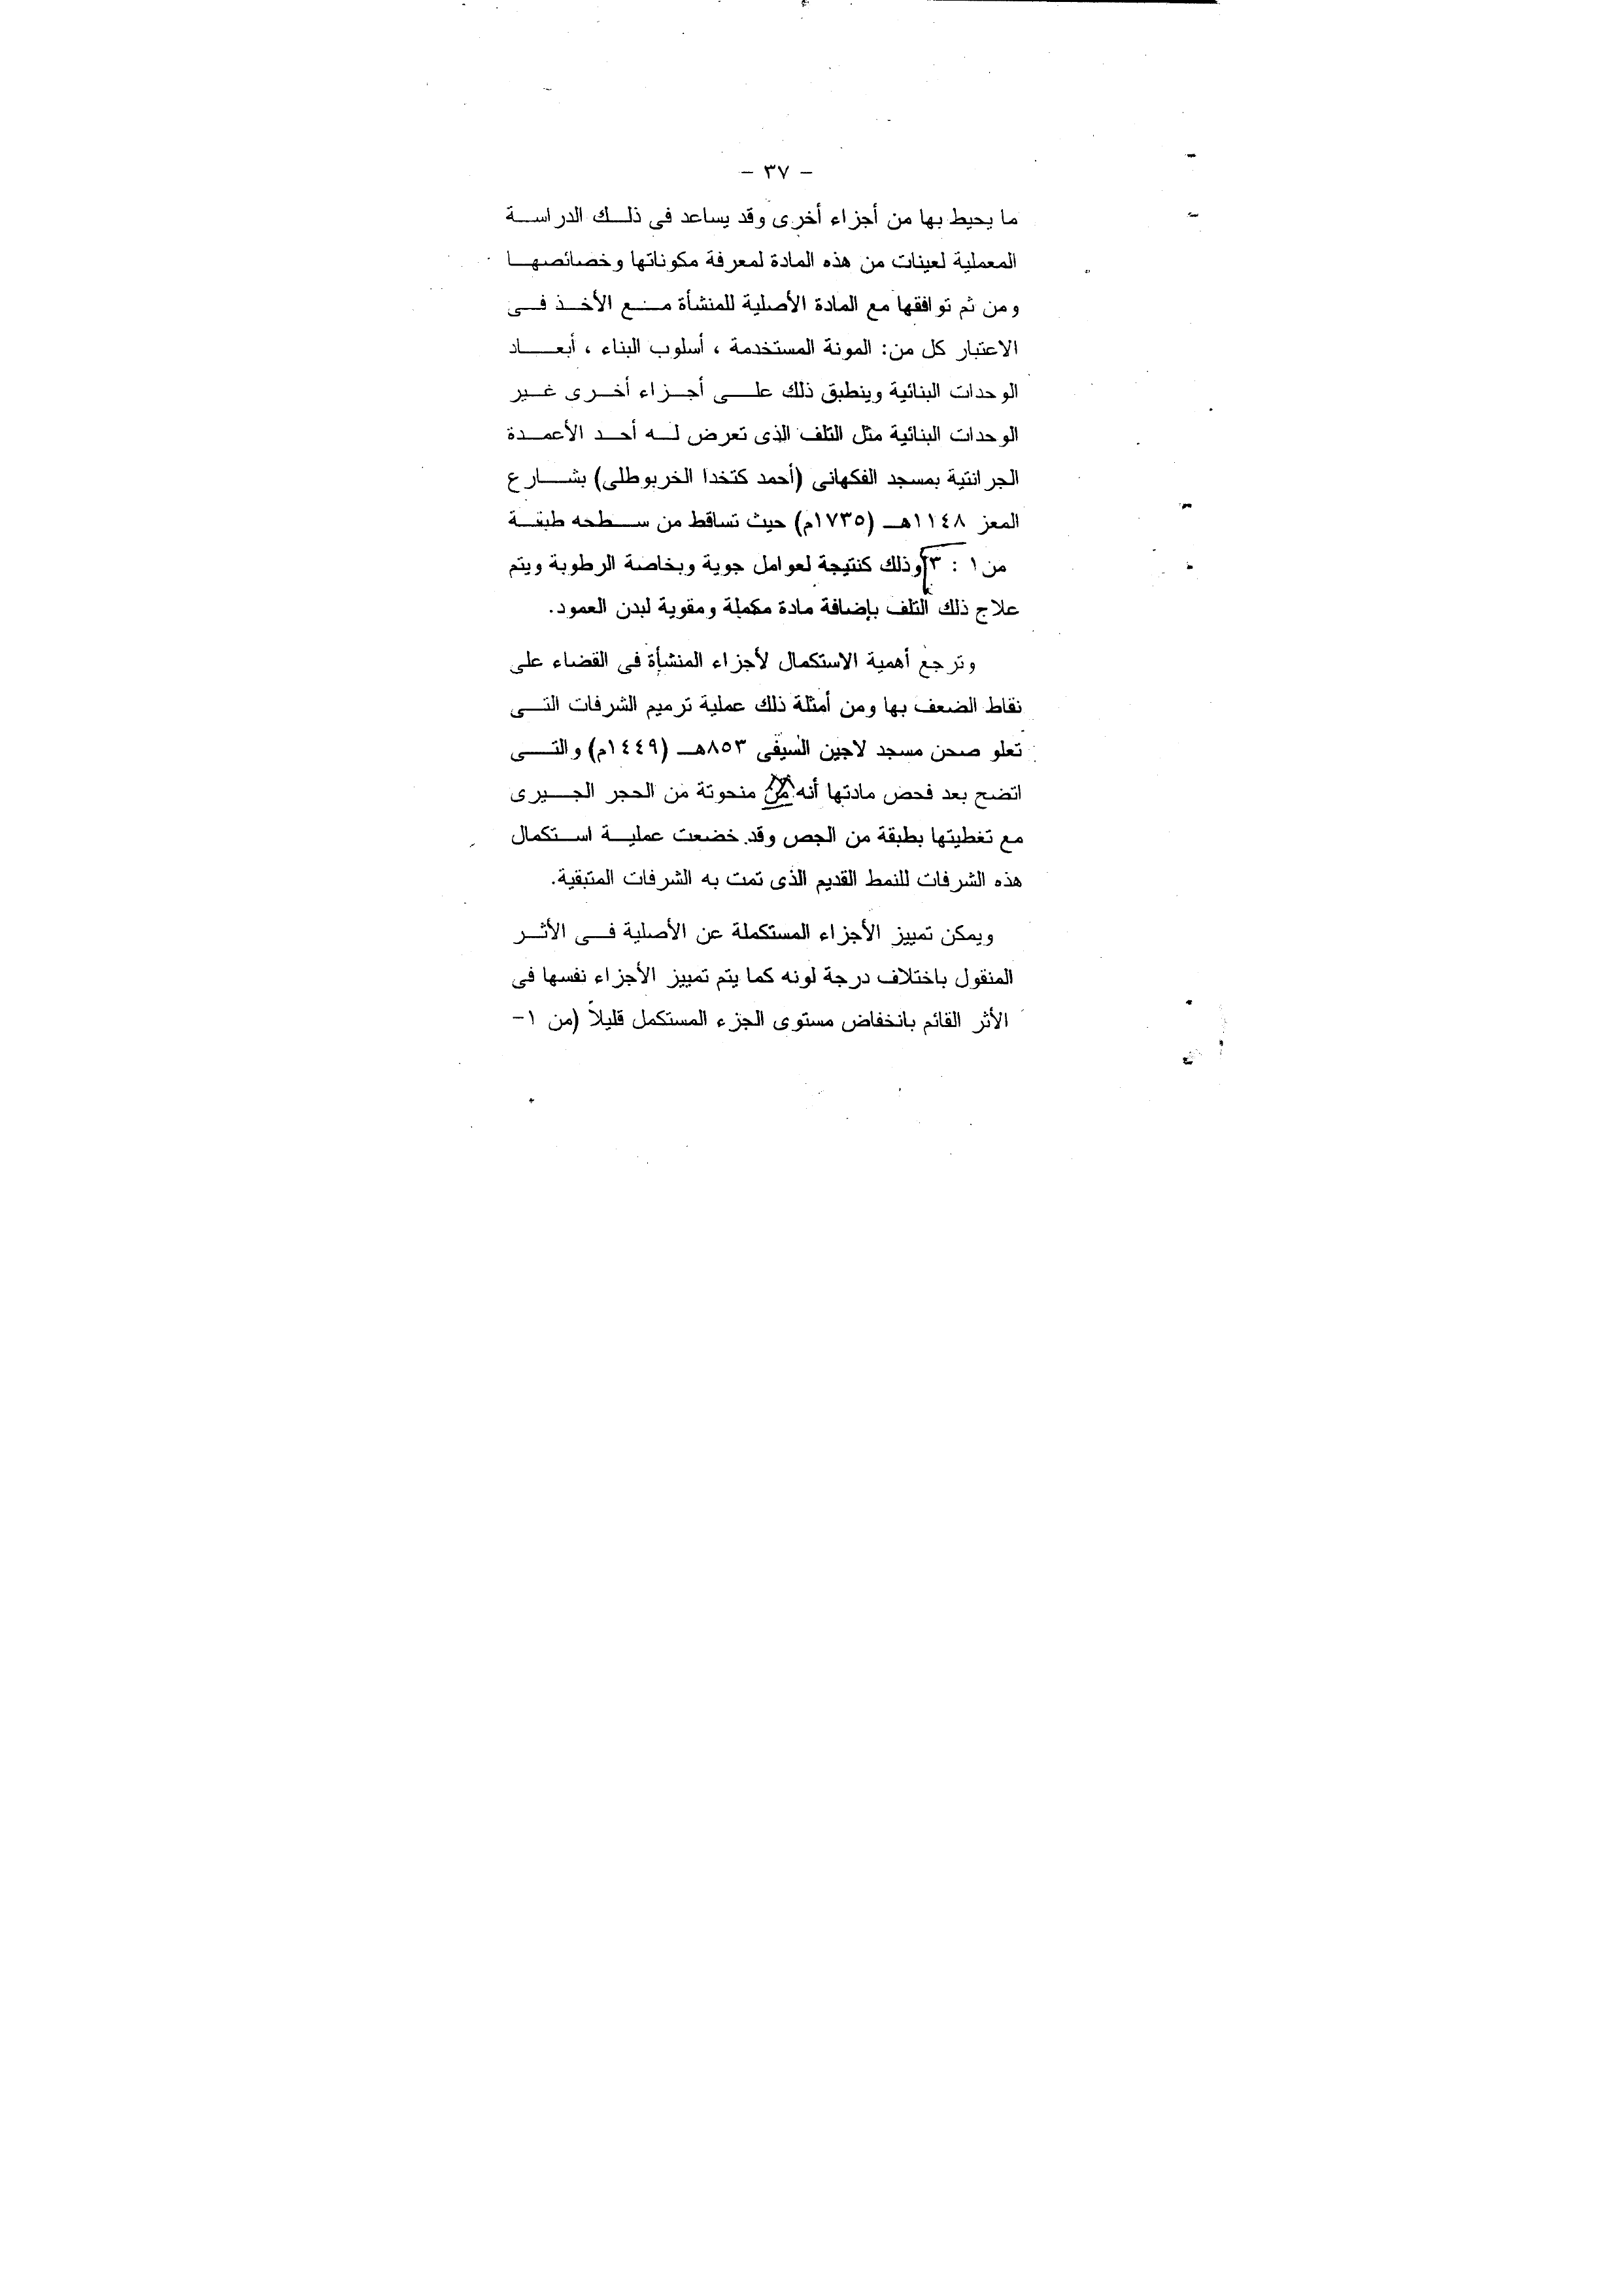 - ٣٧ -
ما يحيط بها من أجزاء أخرى وقد يساعد فى ذلك الدراسة
المعملية لعينات من هذه المادة لمعرفة مكوناتها وخصائصها
ومن ثم توافقها مع المادة الأصلية للمنشأة مع الأخذ فى
الاعتبار كل من: المونة المستخدمة ، أسلوب البناء ، أبعاد
الوحدات البنائية وينطبق ذلك على أجزاء أخرى غير
الوحدات البنائية مثل التلف الذى تعرض له أحد الأعمدة
الجرانتية بمسجد الفكهانى (أحمد كتخدا الخربوطلى) بشارع
المعز ١١٤٨هـ (١٧٣٥م) حيث تساقط من سطحه طبقة
من ١ : ٣ وذلك كنتيجة لعوامل جوية وبخاصة الرطوبة ويتم
علاج ذلك التلف بإضافة مادة مكملة ومقوية لبدن العمود.
وترجع أهمية الاستكمال لأجزاء المنشأة فى القضاء على
نقاط الضعف بها ومن أمثلة ذلك عملية ترميم الشرفات التى
تعلو صحن مسجد لاجين السيفى ٨٥٣هـ (١٤٤٩م) والتى
اتضح بعد فحص مادتها أنه منحوتة من الحجر الجيرى
مع تغطيتها بطبقة من الجص وقد خضعت عملية استكمال
هذه الشرفات للنمط القديم الذى تمت به الشرفات المتبقية.
ويمكن تمييز الأجزاء المستكملة عن الأصلية فى الأثر
المنقول باختلاف درجة لونه كما يتم تمييز الأجزاء نفسها فى
الأثر القائم بانخفاض مستوى الجزء المستكمل قليلاً (من ١-